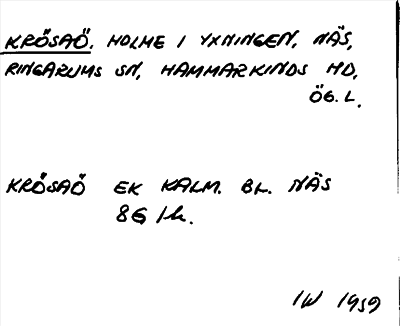 KRÖSAÖ, HOLME I YXNINGEN, NÄS,
RINGARUMS SN, HAMMARKINDS HD,
ÖG. L.
KRÖSAÖ EK KALM. BL. NÄS
8G 1h.
IW 1959